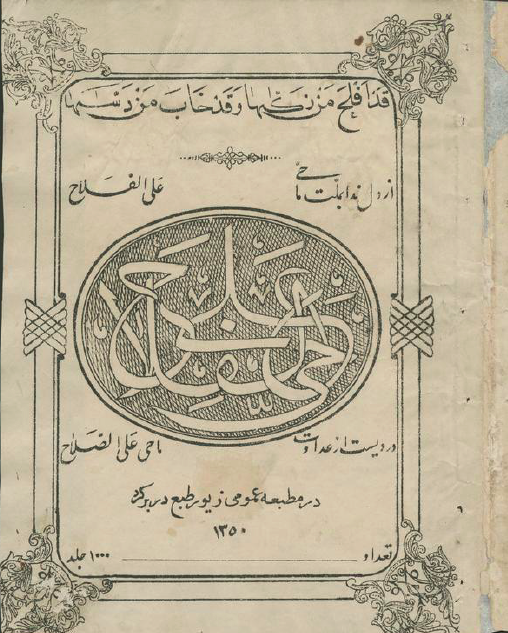 قد افلح من زكىها وقد خاب من دسىها
از دل ندا بملت ما حی علی الفلاح
حی علی الفلاح
دردیست از عداوت ما حی علی الصلاح
در مطبعه عمومی زیور طبع در بر کرد
۱۳۵۰
تعداد ۱۰۰۰ جلد